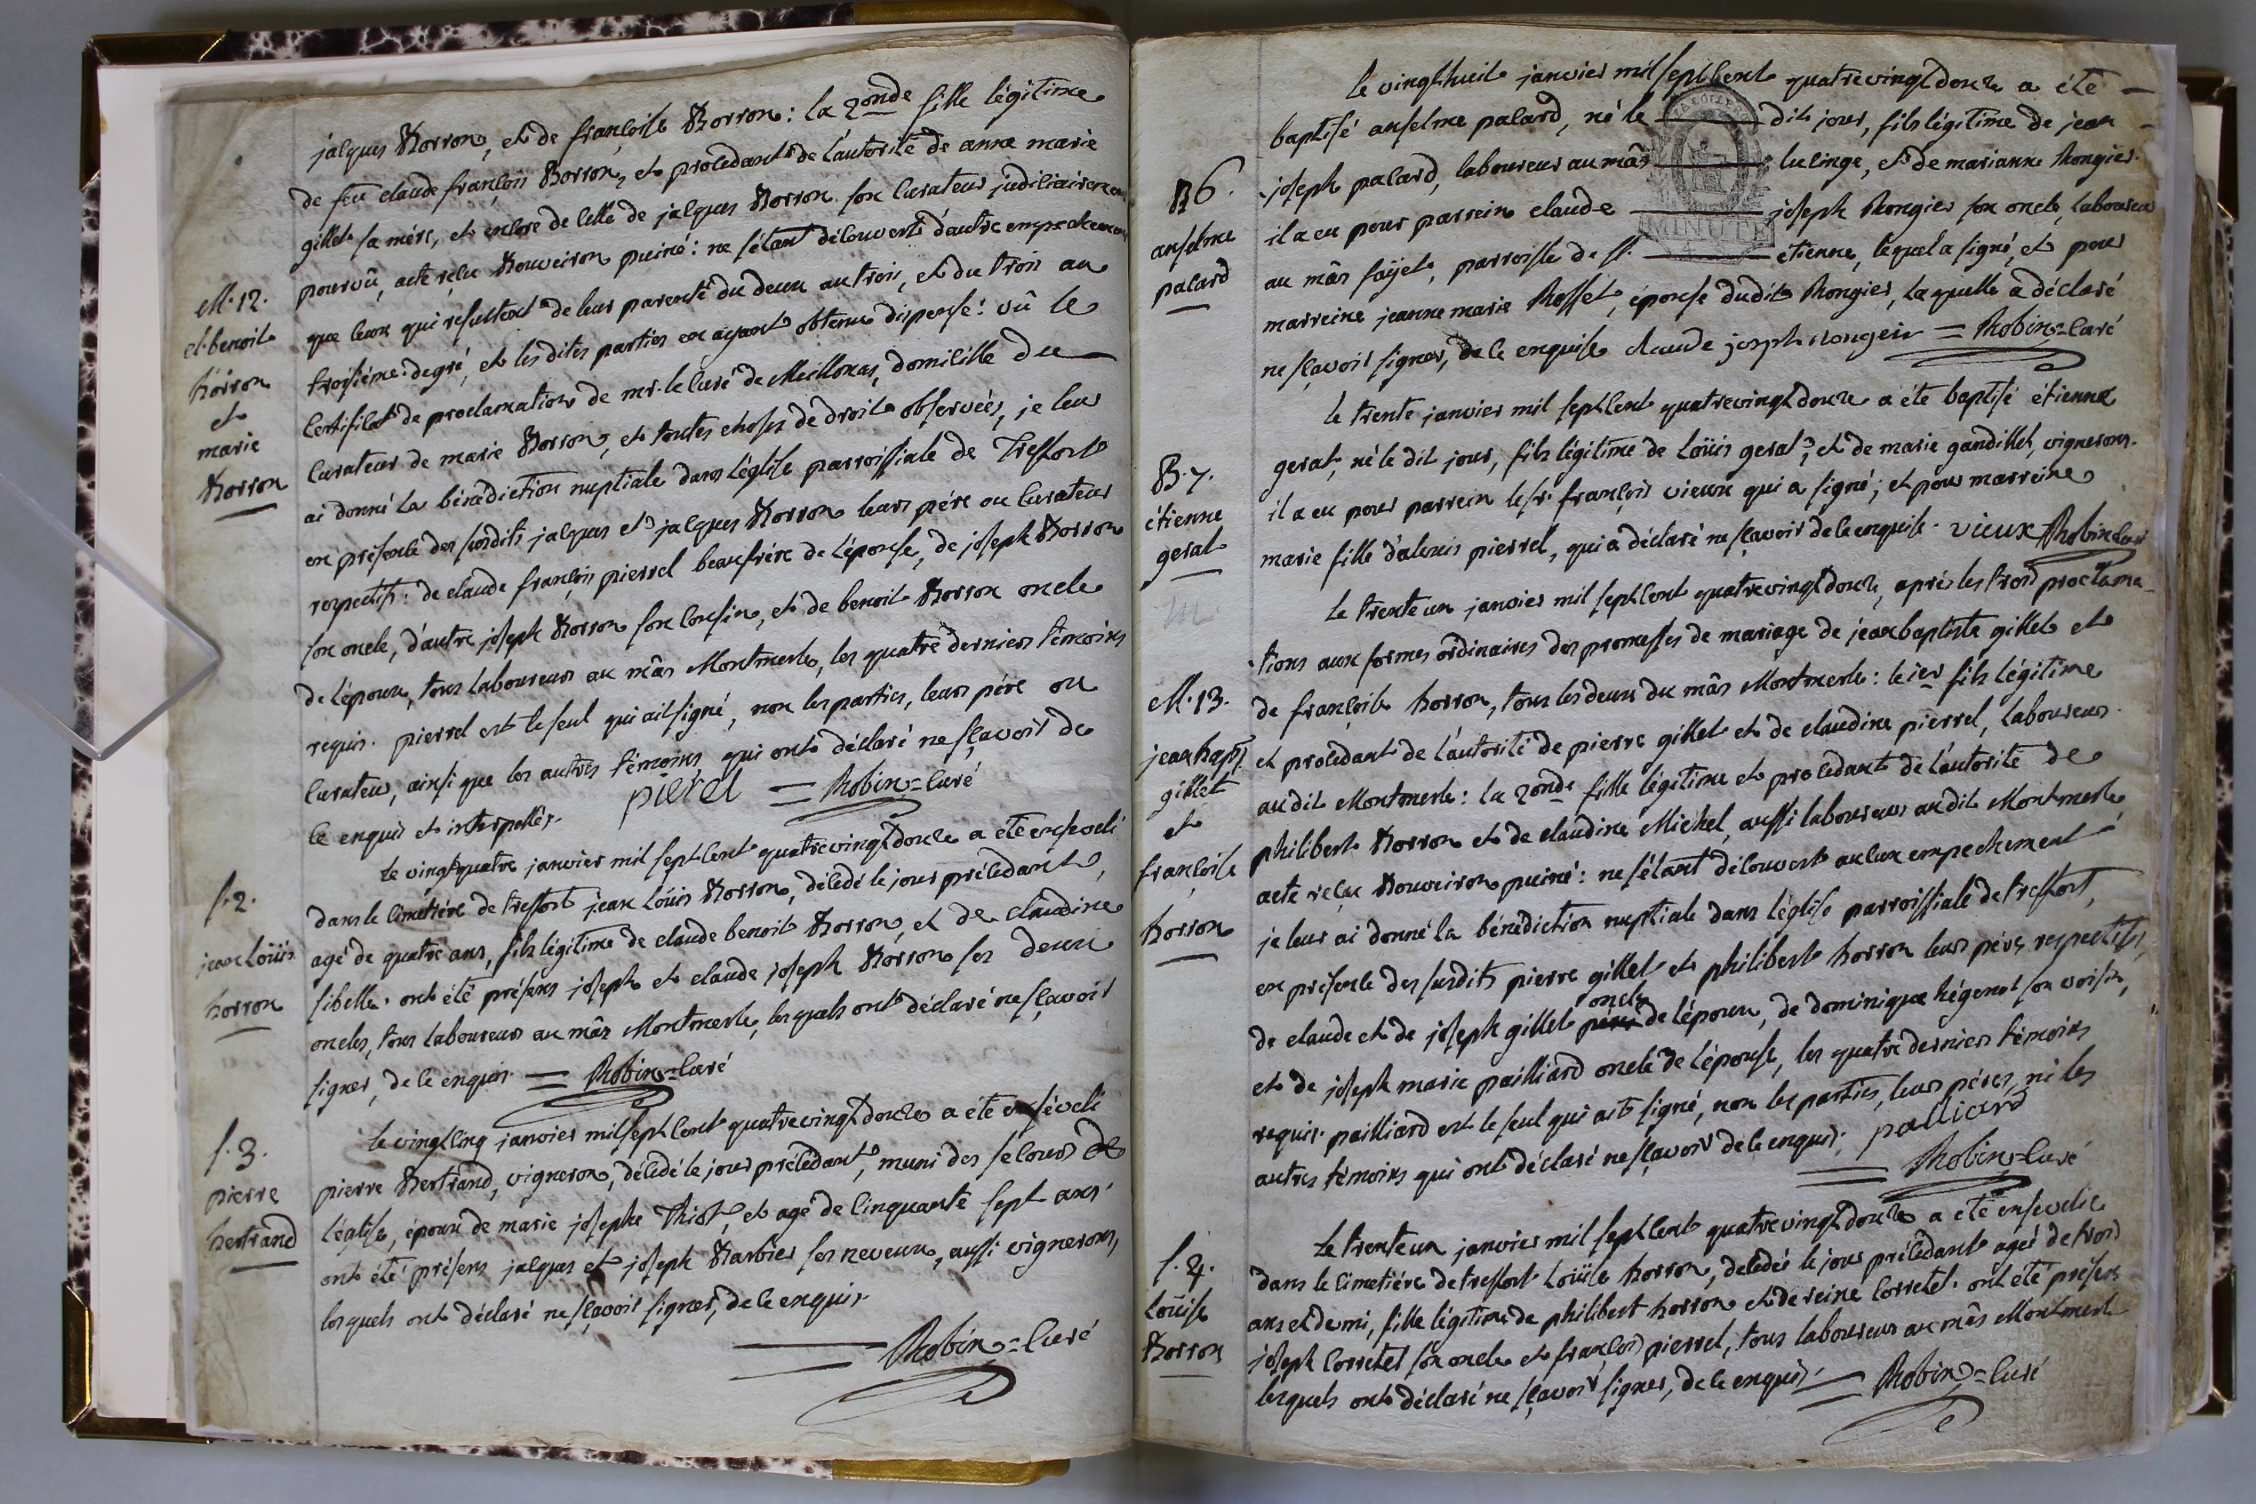 jacques Borron, et de françoise Borron : la 2onde fille légitime
de feu claude françois Borron, et procedante de l'autorité de anne marie
gillet sa mére, et encore de celle de jacques Borron son curateur judiciairement
pourvû, acte reçu Bouveiron puiné : ne s'étant découvert d'autre empechement
M. 12.
cl. benoit
borron
et
marie
Borron
que ceux qui resultent de leur parenté du deux au trois, et du trois au
troisiéme degré, et les dites parties en ayant obtenu dispense : vû le
certificat de proclamations de mr. le curé de Meillonas, domicille du
curateur de marie Borron, et toutes choses de droit observées, je leur
ai donné la bénédiction nuptiale dans l'église parroissiale de Treffort
en présence des susdits jacques et jacques Borron leurs pére ou curateur
respectifs : de claude françois pierrel beaufrére de l'épouse, de joseph Borron
son oncle, d'autre joseph Borron son cousin, et de benoit Borron oncle
de l'époux, tous laboureurs au mâs Montmerle, les quatre derniers témoins
requis. pierrel est le seul qui ait signé, non les parties, leurs pére ou
curateur, ainsi que les autres témoins qui ont déclaré ne sçavoir de
ce enquis et interpellés. pierel = Robin = curé
S. 2.
jean Loüis
borron
Le vingtquatre janvier mil sept cent quatrevingt douze a été enseveli
dans le cimetiére de treffort jean Loüis Borron, décedé le jour précedant,
agé de quatre ans, fils légitime de claude benoit Borron, et de claudine
sibelle. ont été présens joseph et claude joseph Borron ses deux
oncles, tous laboureurs au mâs Montmerle, lesquels ont déclaré ne sçavoir
signer, de ce enquis = Robin = curé
S. 3.
pierre
bertrand
Le vingt cinq janvier mil sept cent quatrevingt douze a été enséveli
pierre Bertrand, vigneron, décedé le jour précedant, muni des secours de
l'église, époux de marie josephe Thiot, et agé de cinquante sept ans.
ont été présens jacques et joseph Barbier ses neveux, aussi vignerons,
lesquels ont déclaré ne sçavoir signer, de ce enquis.
Robin = curé
B 6.
anselme
palard
Le vingt huit janvier mil sept cent quatrevingt douze a été
baptisé anselme palard, né le dit jour, fils légitime de jean
joseph palard, laboureur au mâs lucinge, et de marianne Rongier.
il a eu pour parrein claude joseph Rongier son oncle, laboureur
au mâs fayet, parroisse de st. etienne, lequel a signé, et pour
MINUTE
marreine jeanne marie Rosset, épouse dudit Rongier, laquelle a déclaré
ne sçavoir signer, de ce enquise claude joseph rongeir = Robin = curé
B. 7.
étienne
gerat
Le trente janvier mil sept cent quatrevingt douze a été baptisé étienne
gerat, né le dit jour, fils légitime de Loüis gerat, et de marie gandillet, vignerons.
il a eu pour parrein le sr. françois vieux qui a signé ; et pour marreine
marie fille d'alexis pierrel, qui a déclaré ne sçavoir de ce enquise. vieux Robin curé
M. 13.
jean bapt.
gillet
et
françoise
borron
Le trente un janvier mil sept cent quatrevingt douze, aprés les trois proclama-
tions aux formes ordinaires des promesses de mariage de jean baptiste gillet et
de françoise borron, tous les deux du mâs Montmerle : le 1er fils légitime
et procedant de l'autorité de pierre gillet et de claudine pierrel, laboureurs
audit Montmerle : la 2onde fille légitime et procedant de l'autorité de
philibert Borron et de claudine Michel, aussi laboureurs audit Montmerle,
acte reçu Bouveiron puiné : ne s'étant découvert aucun empechement
je leur ai donné la bénédiction nuptiale dans l'église parroissiale de treffort,
en présence des susdits pierre gillet et philibert borron leurs péres respectifs,
de claude et de joseph gillet oncles de l'époux, de dominique hégenet son voisin,
et de joseph marie pailliard oncle de l'épouse, les quatre derniers témoins
requis. pailliard est le seul qui ait signé, non les parties, leurs péres, ni les
autres témoins qui ont déclaré ne sçavoir de ce enquis. palliard
Robin = curé
S. 4.
Loüise
Borron
Le trente un janvier mil sept cent quatrevingt douze a été ensevelie
dans le cimetiére de treffort Loüise borron, decedée le jour précedant agée de trois
ans et demi, fille légitime de philibert borron et de reine corretel. ont été présens
joseph corretel son oncle et françois pierrel, tous laboureurs au mâs Montmerle
lesquels ont déclaré ne sçavoir signer, de ce enquis = Robin = curé